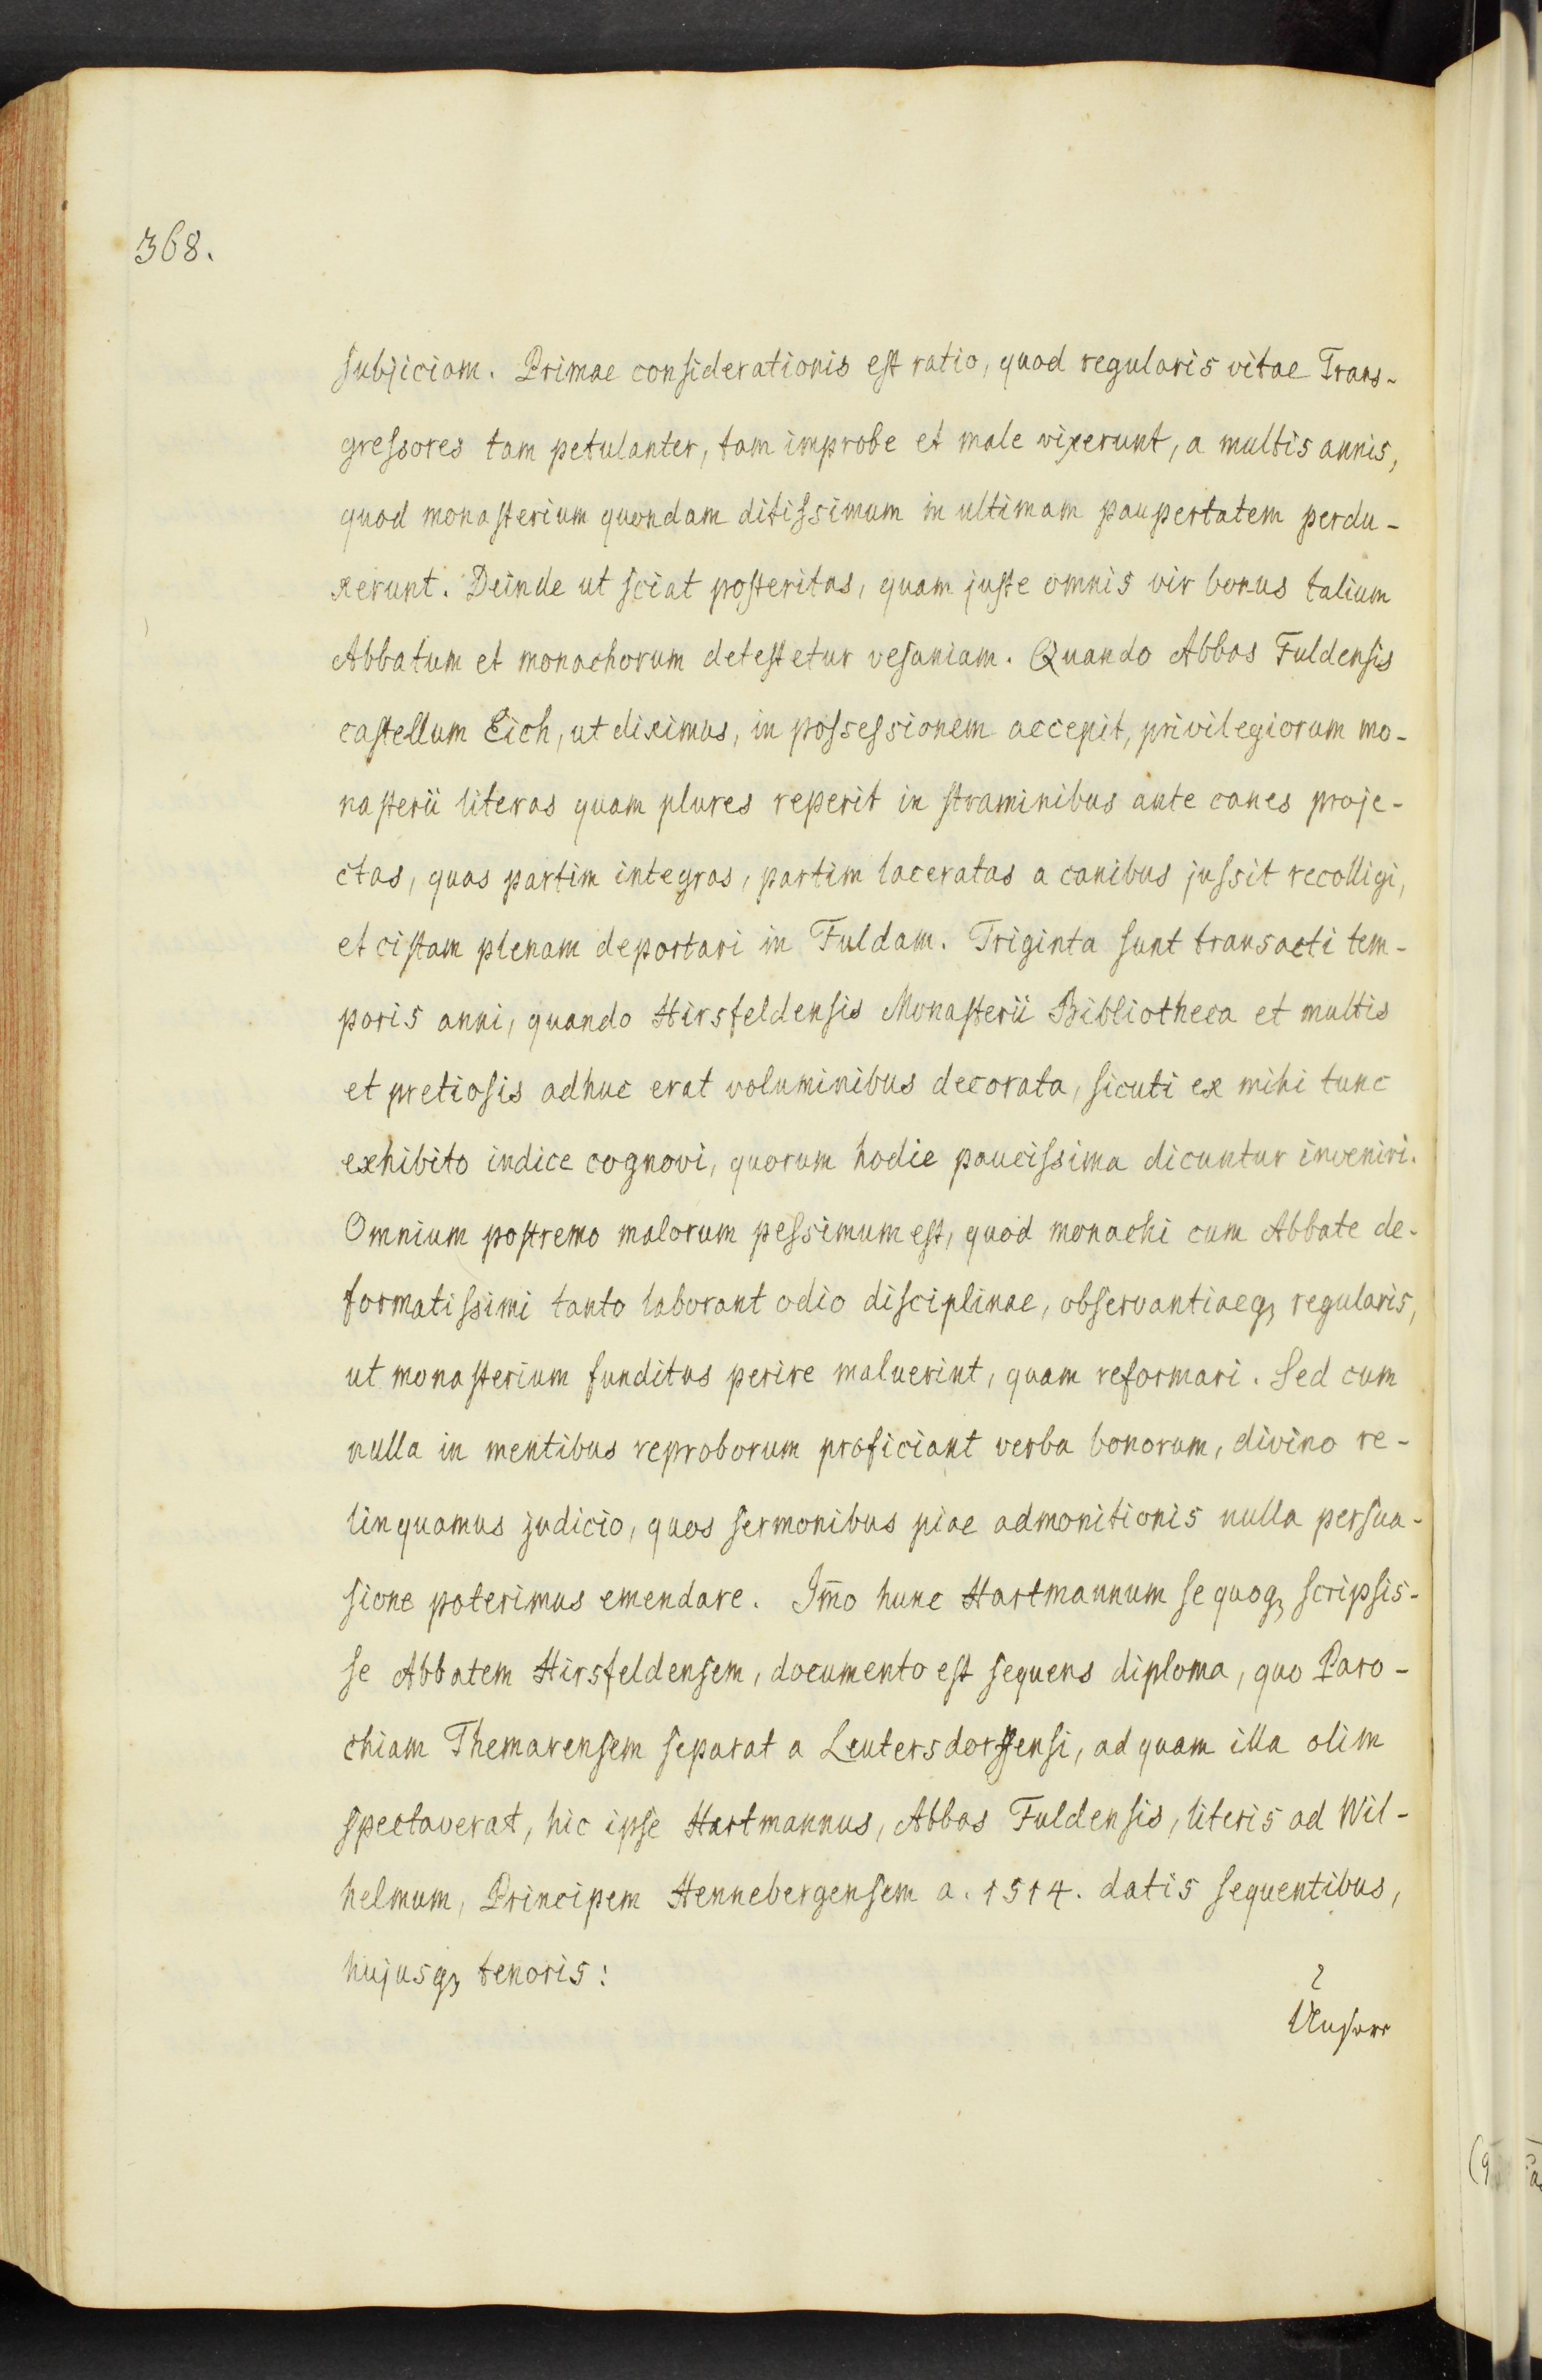 368.
subjiciam. Primae considerationis est ratio, quod regularis vitae Trans-
gressores tam petulanter, tam improbe et male vixerunt, a multis annis,
quod monasterium quondam ditissimum in ultimam paupertatem perdu-
xerunt. Deinde ut sciat posteritas, quam juste omnis vir bonus talium
Abbatum et monachorum detestetur vesaniam. Quando Abbas Fuldensis
castellum Eich, ut diximus, in possessionem accepit, privilegiorum mo-
nasterii literas quam plures reperit in straminibus ante canes proje-
ctas, quas partim integras, partim laceratas a canibus jussit recolligi,
et cistam plenam deportari in Fuldam. Triginta sunt transacti tem-
poris anni, quando Hirsfeldensis Monasterii Bibliotheca et multis
et pretiosis adhuc erat voluminibus decorata, sicuti ex mihi tunc
exhibito indice cognovi, quorum hodie paucissima dicuntur inveniri.
Omnium postremo malorum pessimum est, quod monachi cum Abbate de-
formatissimi tanto laborant odio disciplinae, observantiaeq3 regularis,
ut monasterium funditus perire maluerint, quam reformari. Sed cum
nulla in mentibus reproborum proficiant verba bonorum, divino re-
linquamus judicio, quos sermonibus piae admonitionis nulla persua-
sione poterimus emendare. Im̄o hunc Hartmannum se quoq3 scripsis-
se Abbatem Hirsfeldensem, documento est sequens diploma, quo Paro-
chiam Themarensem separat a Leutersdorffensi, ad quam illa olim
spectaverat, hic ipse Hartmannus, Abbas Fuldensis, literis ad Wil-
helmum, Principem Hennebergensem a. 1514. datis sequentibus,
hujusq3 tenoris: